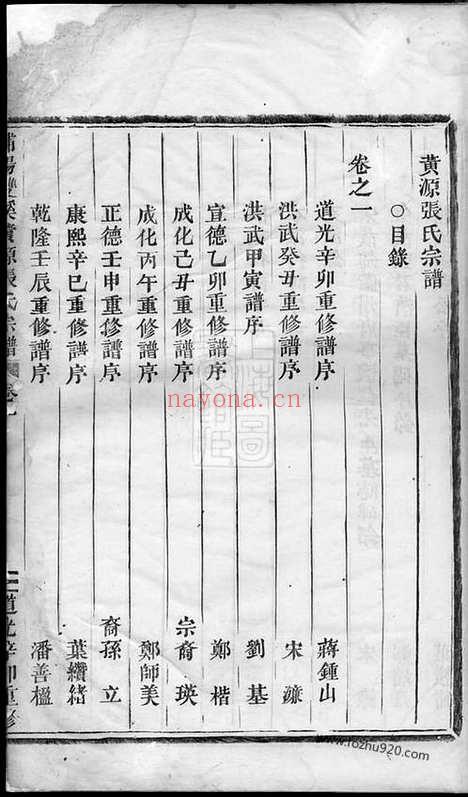 黃源張氏宗譜
○目錄
卷之一
道光辛卯重修譜序 蔣鍾山
洪武癸丑重修譜序 宋濂
洪武甲寅譜序 劉基
宣德乙卯重修譜序 鄭楷
成化己丑重修譜序 宗裔瑛
成化丙午重修譜序 鄭師美
正德壬申重修譜序 裔孫立
康熙辛巳重修譜序 葉纘緒
乾隆壬辰重修譜序 潘善楹
浦陽雙溪黃源張氏宗譜 卷一 道光辛卯重修
nayona.cn
www.fozhu920.com